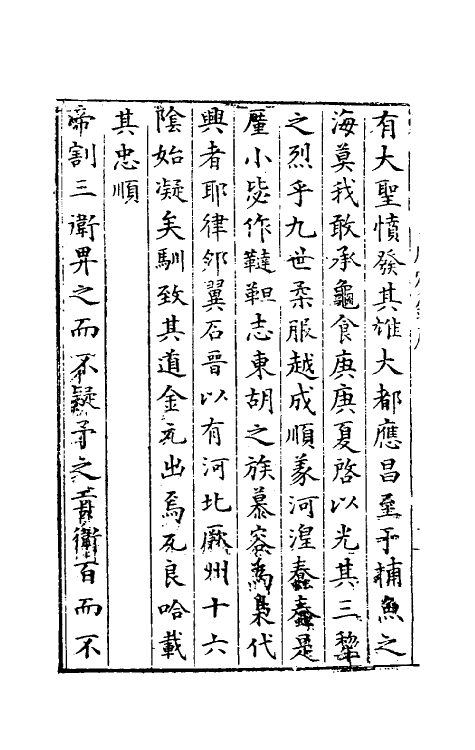 有大聖憤發其雄大都應昌至于輔魚之
海莫我敢承龜食庚庚夏啓以光其三犂
之烈乎九世柔服越成順義河湟蠢蠢是
麈小毖作韃靼志東胡之族慕容為梟代
興者耶律郤翼石晉以有河北厥州十六
陰始凝矣馴致其道金元出焉兀良哈載
其忠順
帝割三衛畀之而不疑予之𠮷衛百而不